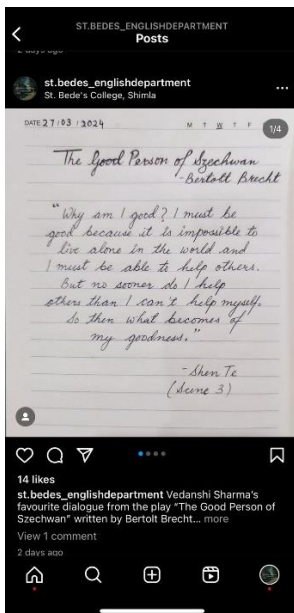 ST.BEDES_ENGLISHDEPARTMENT
Posts
2 days ago
st.bedes_englishdepartment
St. Bede's College, Shimla
1/4
DATE 27/03/2024
M T W T F
The Good Person of Szechwan
-Bertolt Brecht
"Why am I good? I must be
good because it is impossible to
live alone in the world and
I must be able to help others.
But no sooner do I help
others than I can't help myself.
So then what becomes of
my goodness."
- Shen Te
(Scene 3)
14 likes
st.bedes_englishdepartment Vedanshi Sharma's
favourite dialogue from the play "The Good Person of
Szechwan" written by Bertolt Brecht... more
View 1 comment
2 days ago